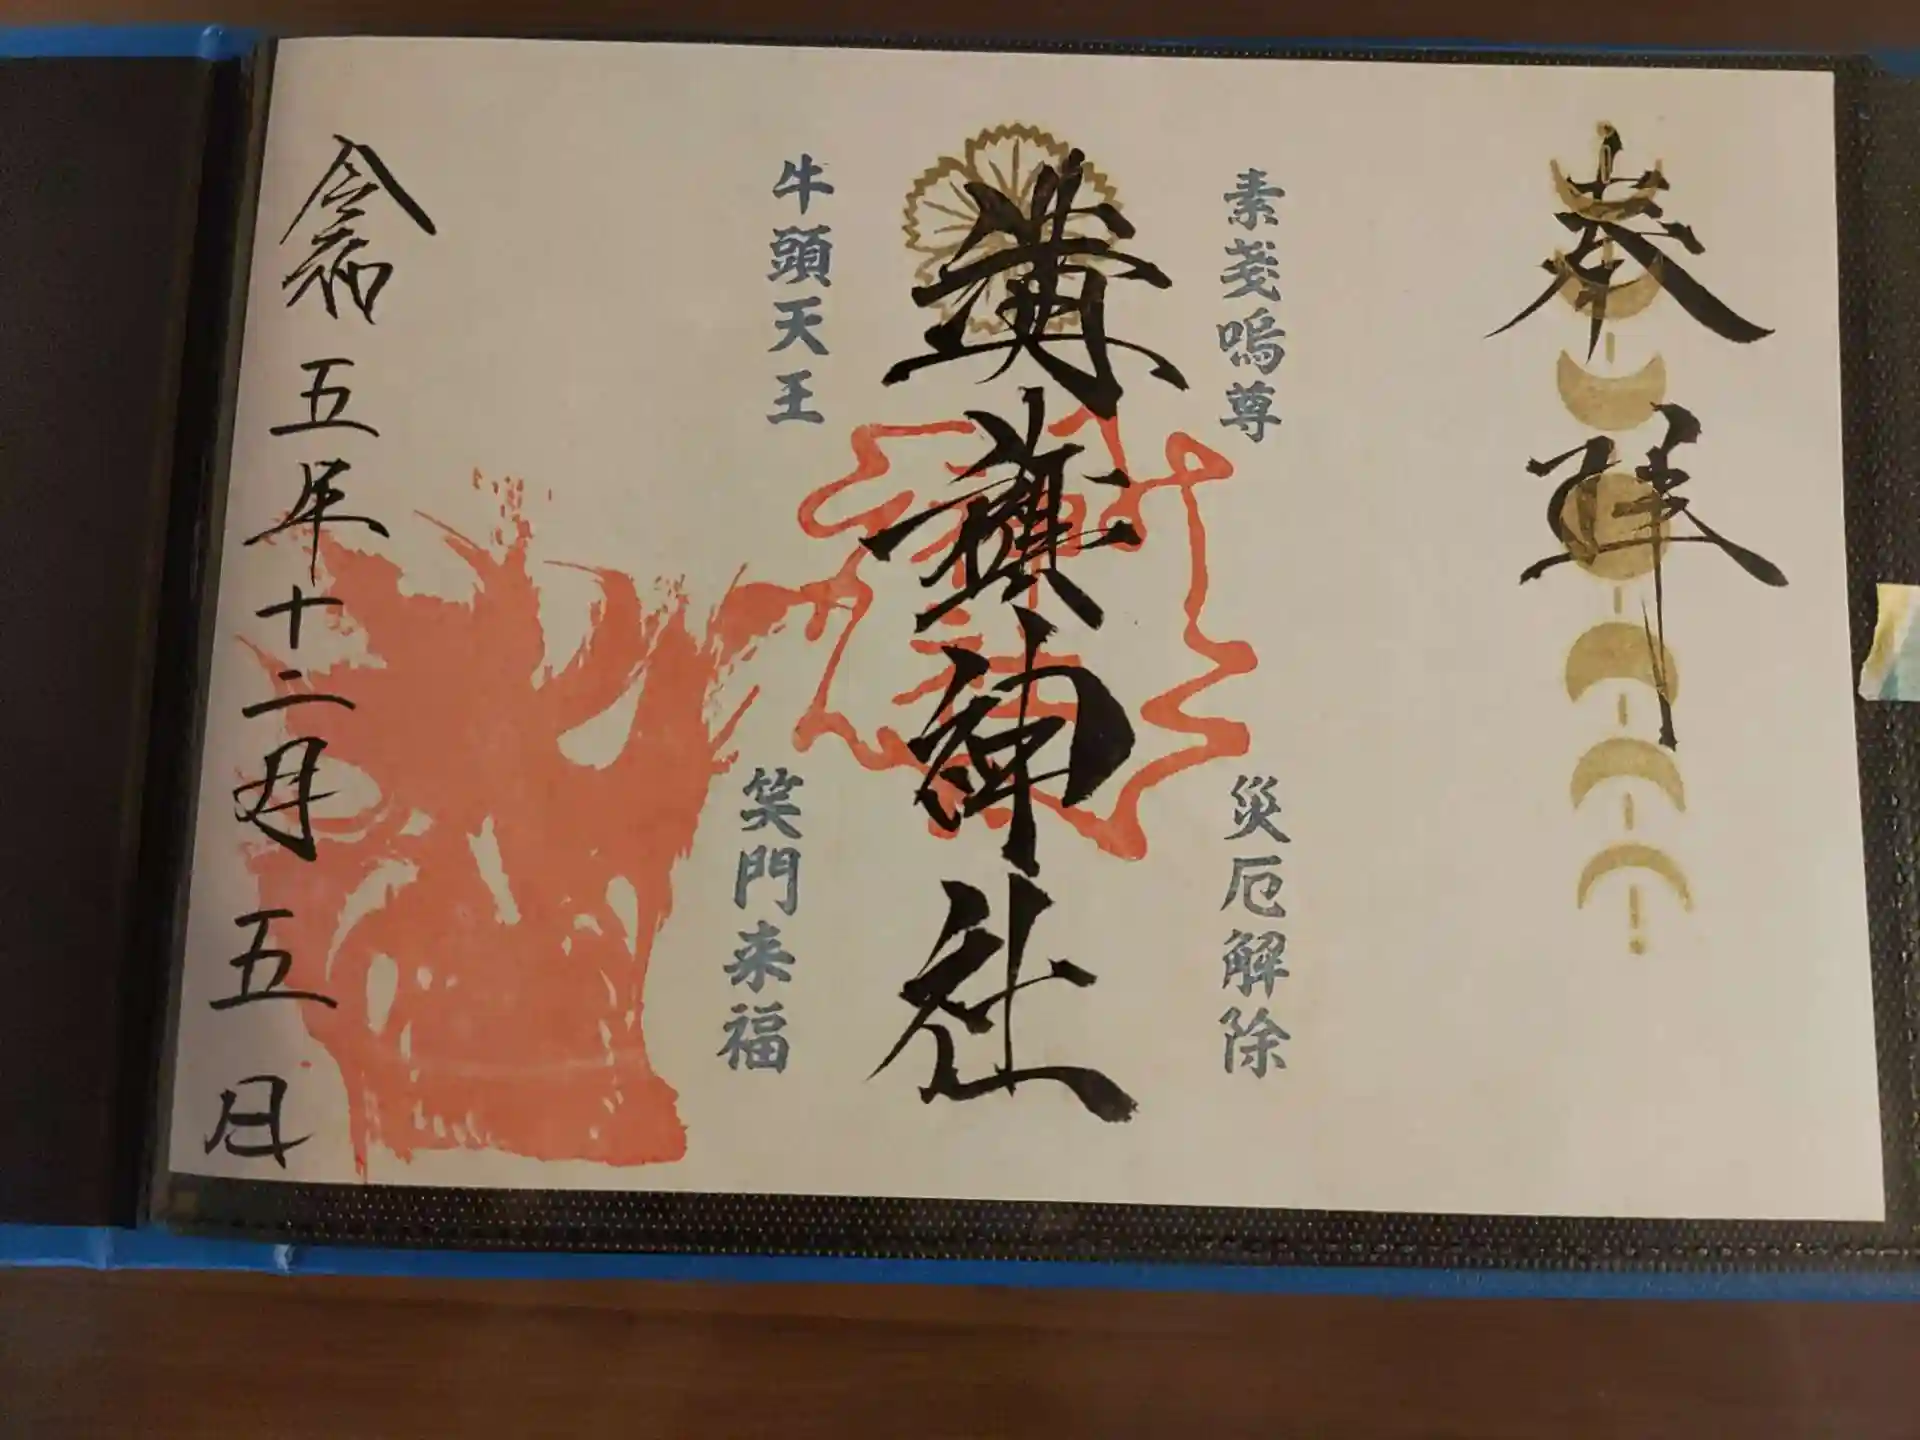 奉拝
素戔嗚尊
災厄解除
溝旗神社
牛頭天王
笑門来福
令和五年十二月五日